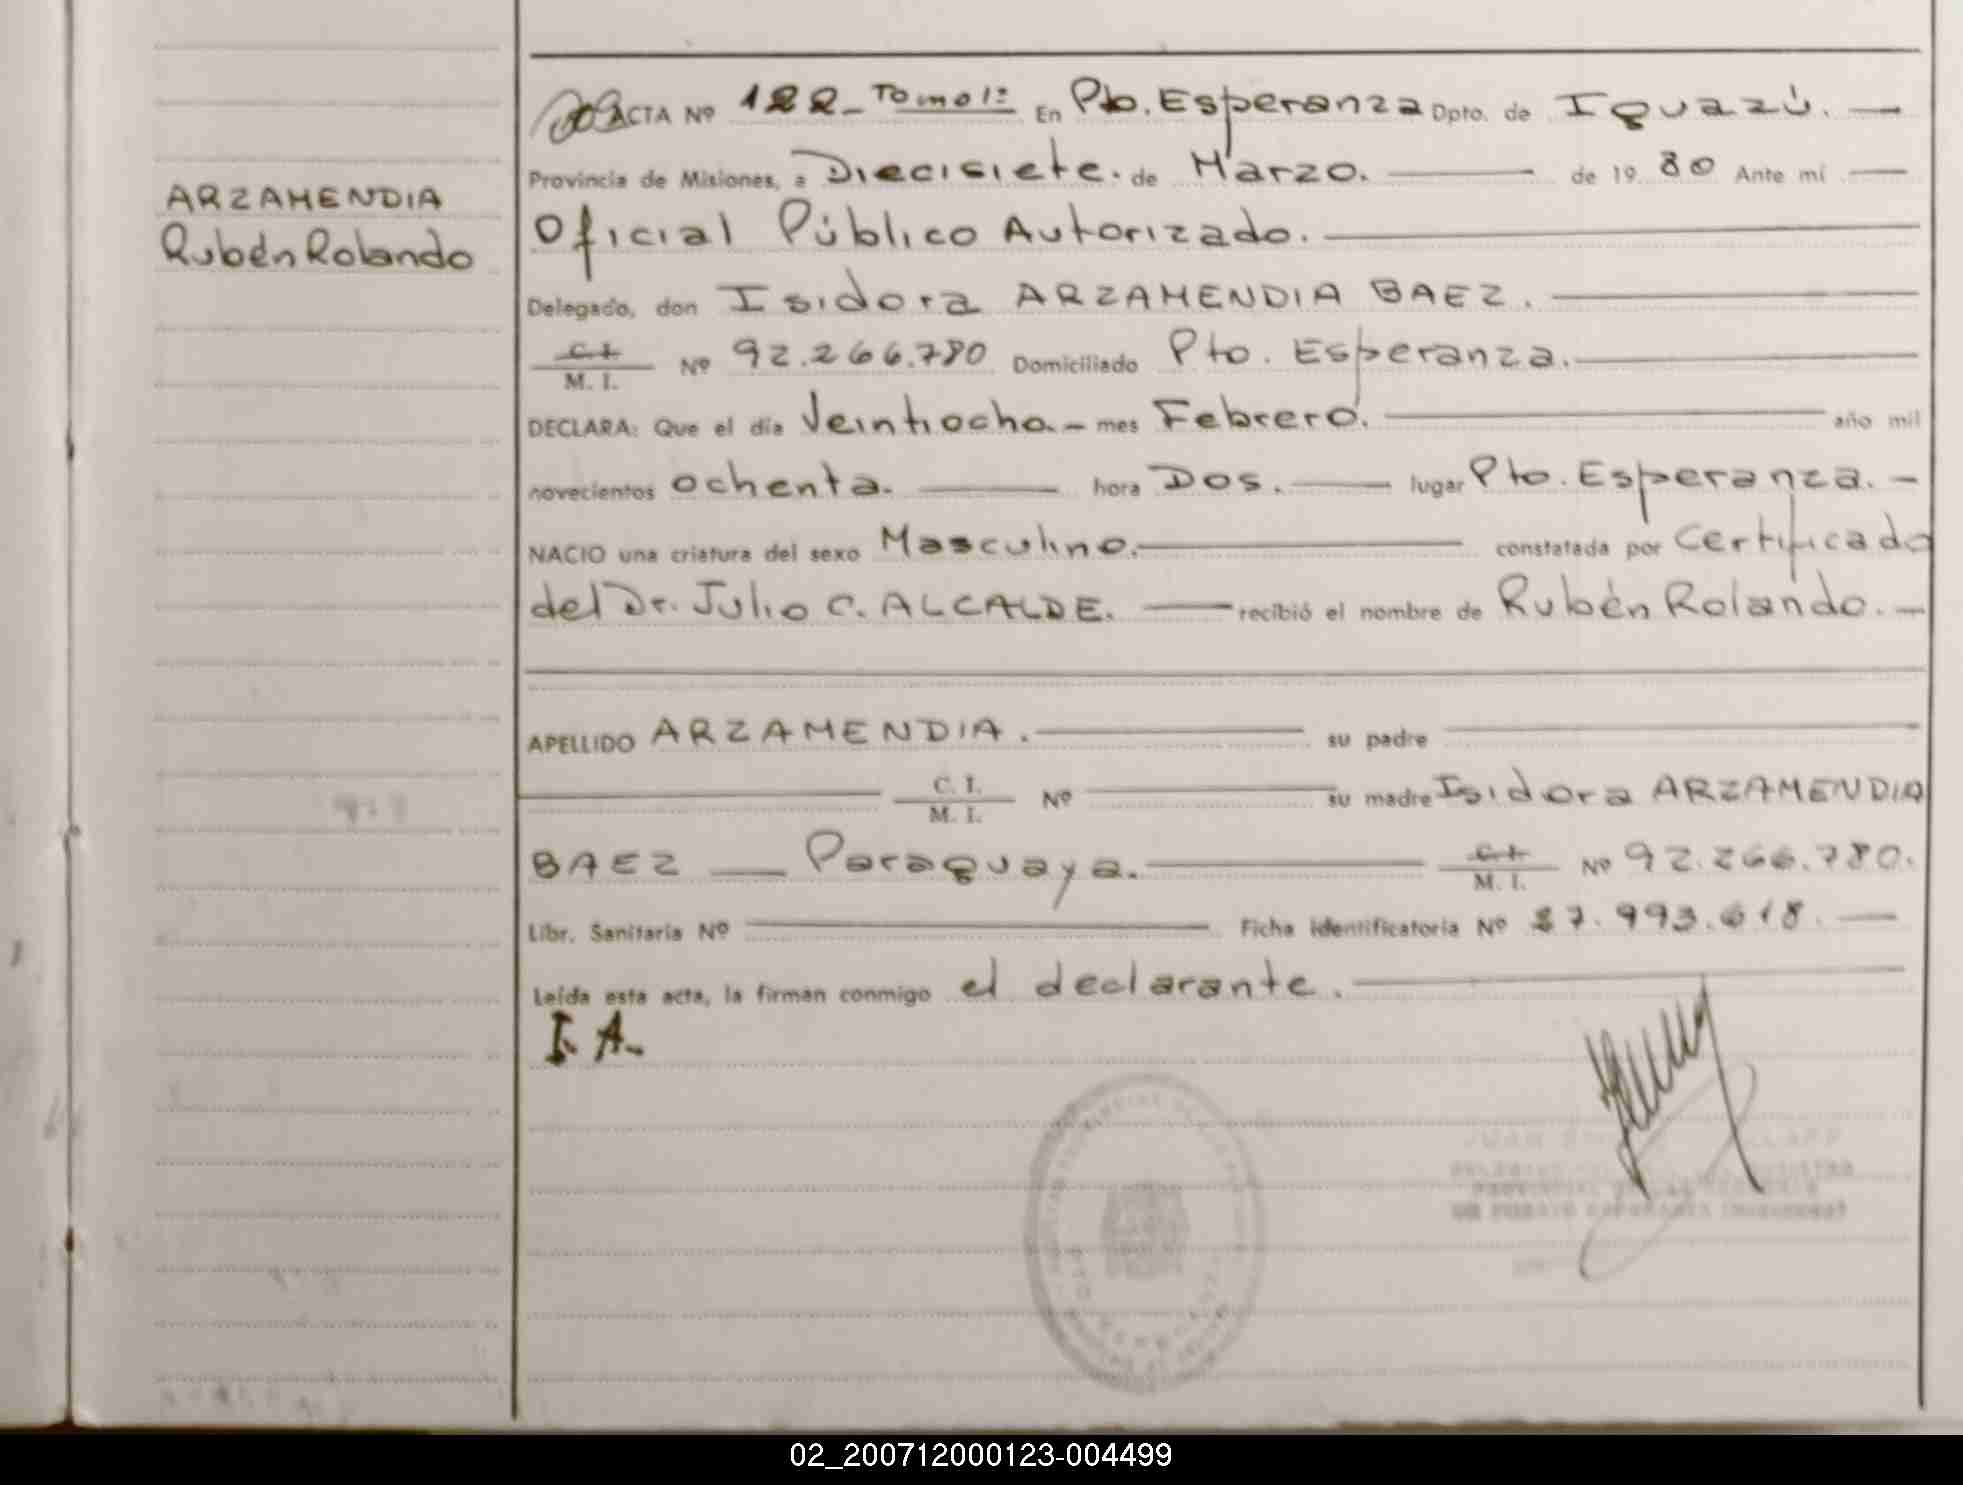 ACTA Nº 122 - Tomo 1º En Pto. Esperanza Dpto. de Iguazú. —
Provincia de Misiones, a Diecisiete. de Marzo. — de 19 80 Ante mí —
ARZAMENDIA
Rubén Rolando
Oficial Público Autorizado. —
Delegado, don Isidora ARZAMENDIA BAEZ. —
C. I.
M. I. Nº 92.266.780 Domiciliado Pto. Esperanza. —
DECLARA: Que el día Veintiocho. - mes Febrero. — año mil
novecientos ochenta. — hora Dos. — lugar Pto. Esperanza. —
NACIO una criatura del sexo Masculino. — constatada por Certificado
del Dr. Julio C. ALCALDE. — recibió el nombre de Rubén Rolando. —
APELLIDO ARZAMENDIA. — su padre —
— C. I.
M. I. Nº — su madre Isidora ARZAMENDIA
BAEZ — Paraguaya. — C. I.
M. I. Nº 92.266.780.
Libr. Sanitaria Nº — Ficha identificatoria Nº 27.993.618. —
Leída esta acta, la firman conmigo el declarante. —
I. A.
02_200712000123-004499